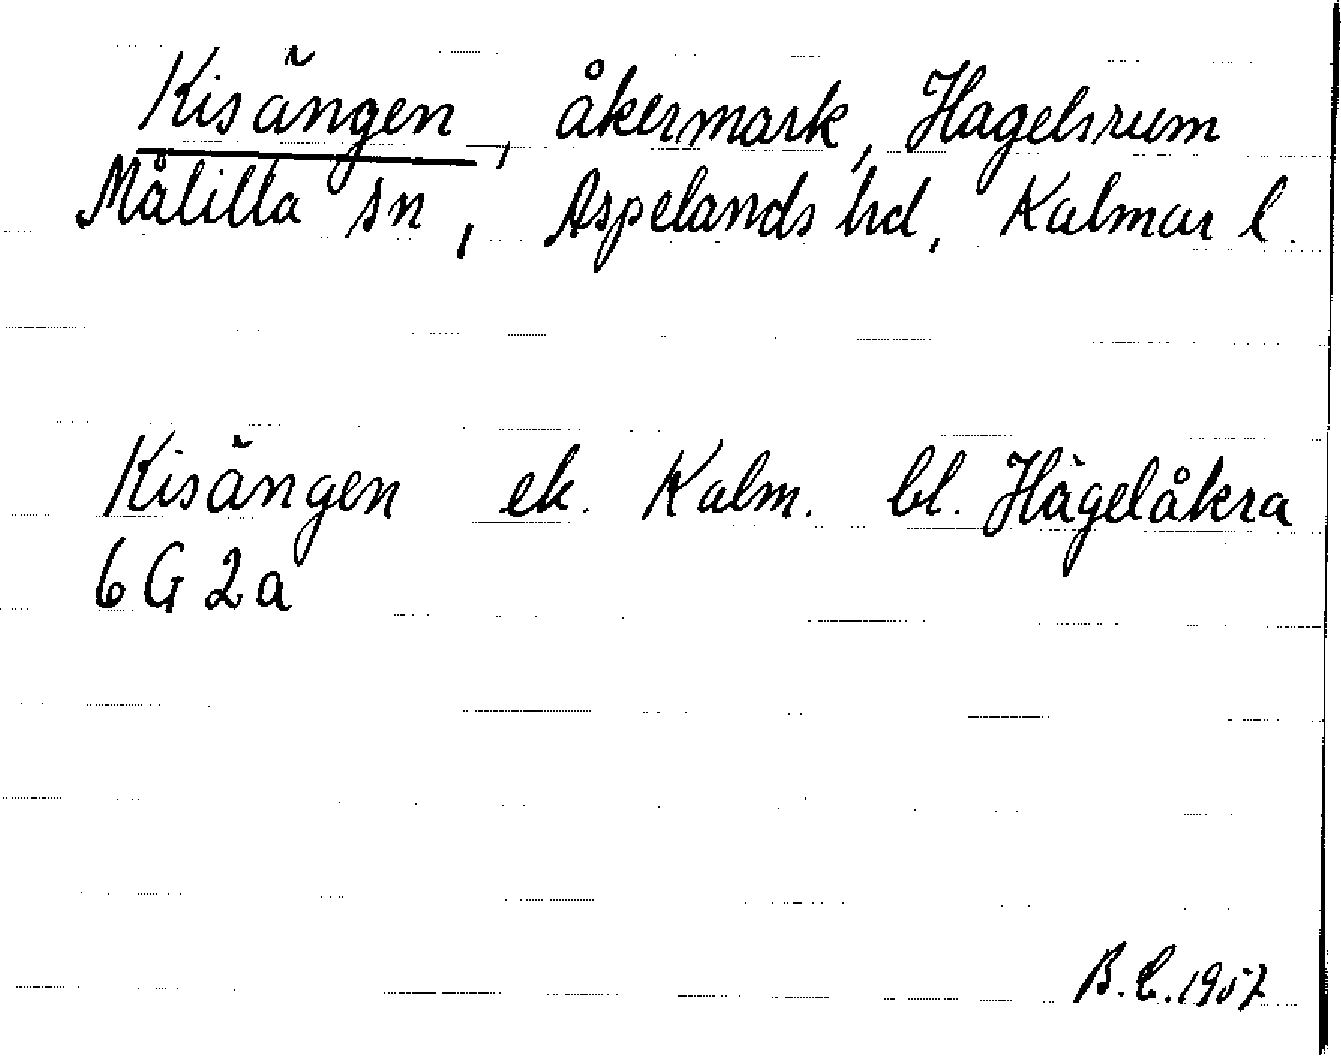 Kisängen, åkermark, Hagelsrum
Målilla sn, Aspelands hd, Kalmar l.
Kisängen ek. Kalm. bl. Hägelåkra
6 G 2 a
B.C. 1957